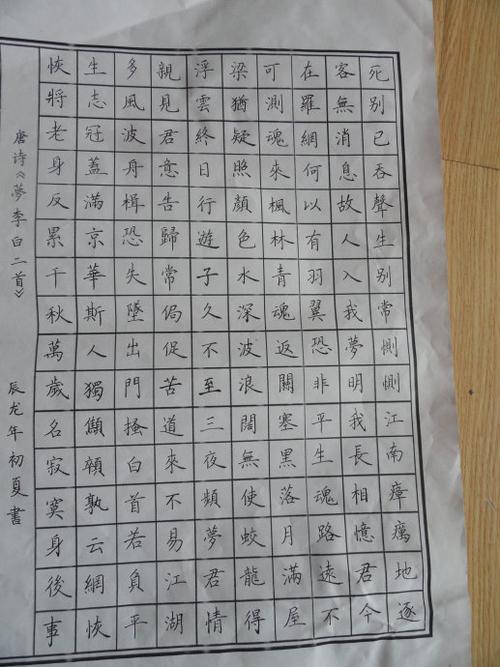 死別已吞聲生別常惻惻江南瘴癘地逐
客無消息故人入我夢明我長相憶君今
在羅網何以有羽翼恐非平生魂路遠不
可測魂來楓林青魂返關塞黑落月滿屋
梁猶疑照顏色水深波浪闊無使蛟龍得
浮雲終日行遊子久不至三夜頻夢君情
親見君意告歸常侷促苦道來不易江湖
多風波舟楫恐失墜出門搔白首若負平
生志冠蓋滿京華斯人獨顦顇孰云網恢
恢將老身反累千秋萬歲名寂寞身後事
唐诗《夢李白二首》
辰龙年初夏書